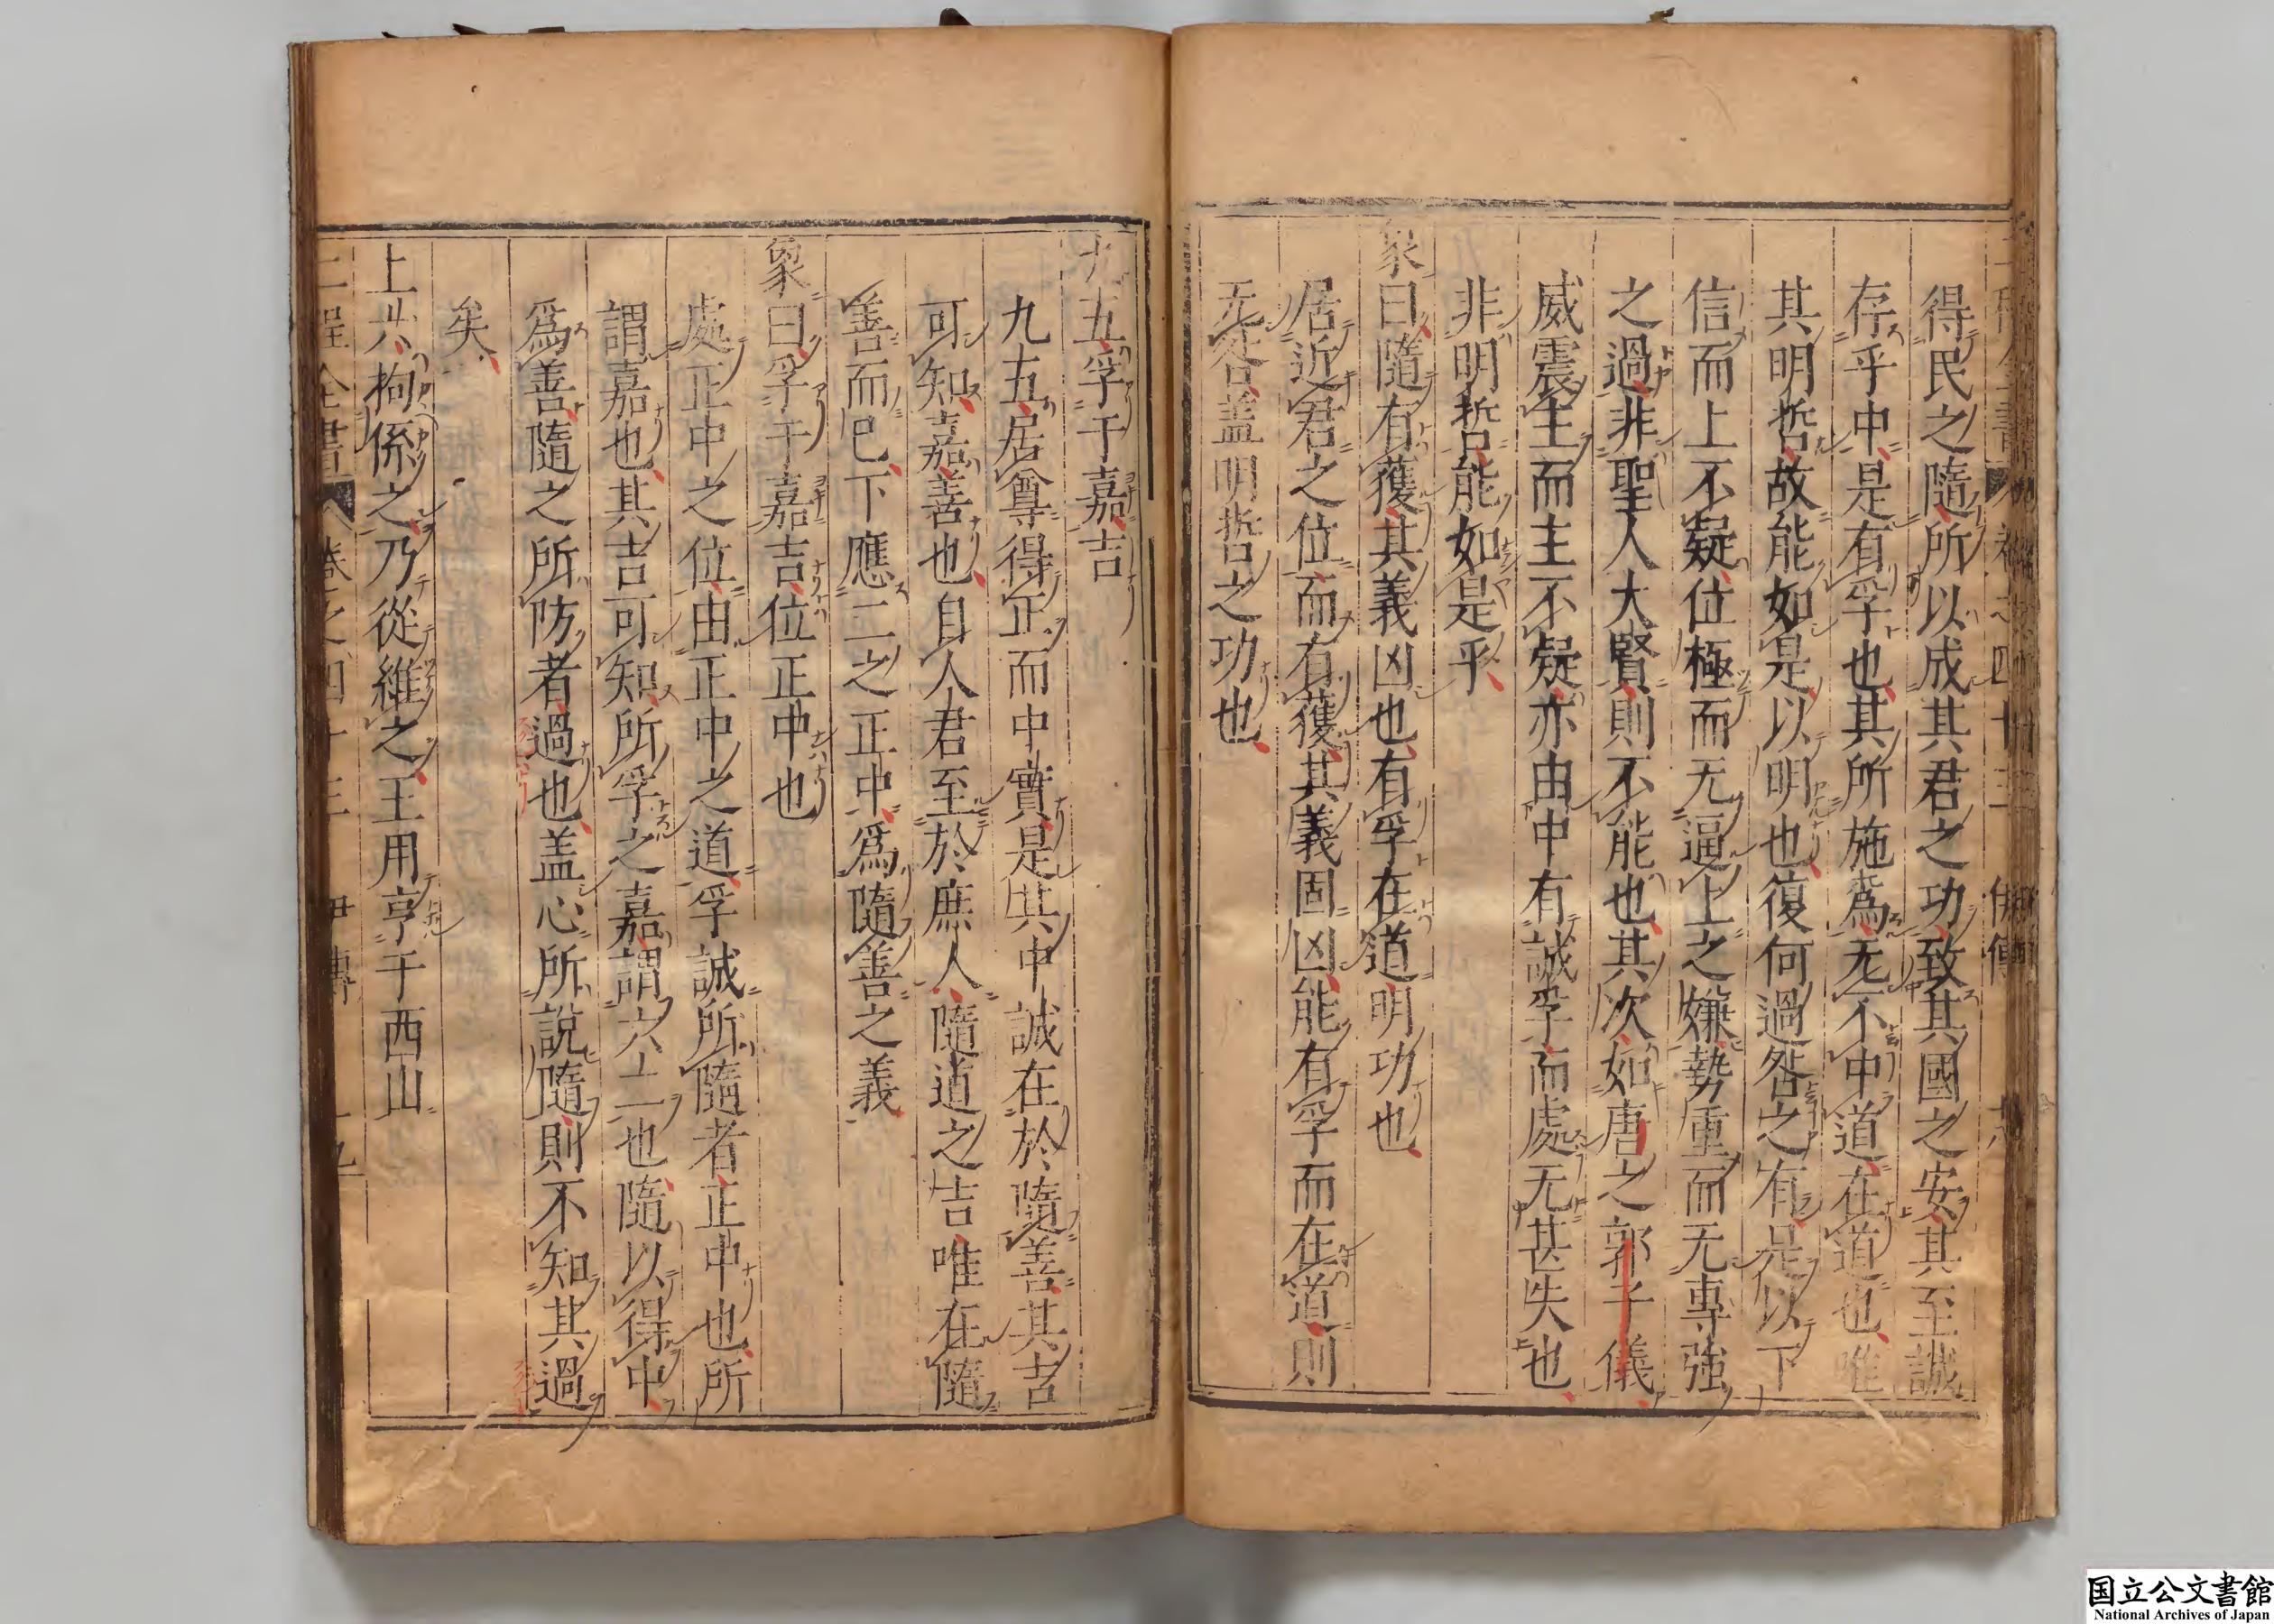 得民之隨所以成其君之功致其國之安其至誠
存乎中是有孚也其所施爲无不中道在道也唯
其明哲故能如是以明也復何過咎之有是以下
信而上不疑位極而无逼上之嫌勢重而无專強
之過非聖人大賢則不能也其次如唐之郭子儀
威震主而主不疑亦由中有誠孚而處无甚失也
非明哲能如是乎
象曰隨有獲其義凶也有孚在道明功也
居近君之位而有獲其義固凶能有孚而在道則
无咎盖明哲之功也
九五孚于嘉吉
九五居尊得正而中實是其中誠在於隨善其吉
可知嘉善也自人君至於庶人隨道之吉唯在隨
善而已下應二之正中爲隨善之義
象曰孚于嘉吉位正中也
處正中之位由正中之道孚誠所隨者正中也所
謂嘉也其吉可知所孚之嘉謂六二也隨以得中
爲善隨之所防者過也盖心所說隨則不知其過
矣
上六拘係之乃從維之王用亨于西山
二程全書 卷之四十三
国立公文書館
National Archives of Japan